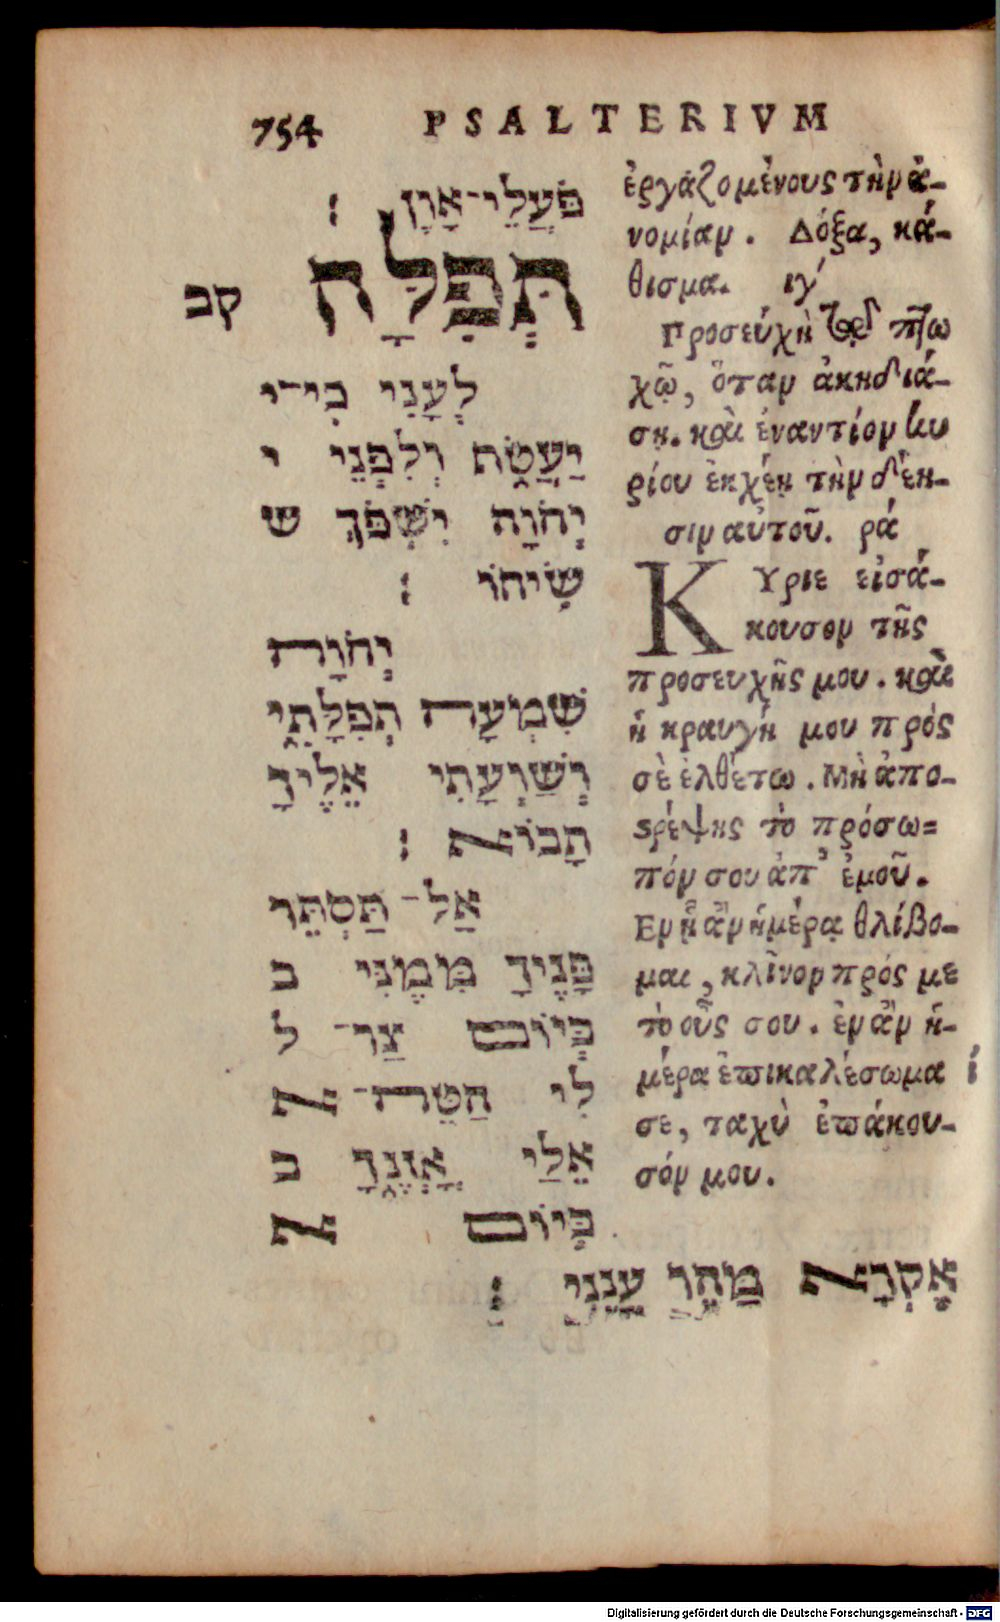 754 PSALTERIVM
פֹּעֲלֵי־אָוֶן :
תְּפִלָּה קב
לְעָנִי כִי־י
יַעֲטֹף וְלִפְנֵי י
יְהֹוָה יִשְׁפֹּךְ ש
שִׂיחוֹ :
יְהֹוָה
שִׁמְעָה תְפִלָּתִי
וְשַׁוְעָתִי אֵלֶיךָ
תָבוֹא :
אַל־תַּסְתֵּר
פָּנֶיךָ מִמֶּנִּי ב
בְּיוֹם צַר־ל
לִי הַטֵּה־א
אֵלַי אָזְנֶךָ ב
בְּיוֹם א
אֶקְרָא מַהֵר עֲנֵנִי :
ἐργαζομένους τὴν ἀ-
νομίαν. Δόξα, κά-
θισμα. ιγ΄
Προσεύχὴ τῷ πτω
χῷ, ὅταν ἀκηδιά-
σῃ. καὶ ἐναντίον κυ
ρίου ἐκχέῃ τὴν δέη-
σιν αὐτοῦ. ρά
ΚΥριε εἰσά-
κουσον τῆς
προσευχῆς μου. καὶ
ἡ κραυγή μου πρός
σὲ ἐλθέτω. Μὴ ἀπο-
στρέψῃς τὸ πρόσω=
πόν σου ἀπ᾽ ἐμοῦ.
Εν ᾗ ἂν ἡμέρᾳ θλίβο-
μαι, κλῖνον πρός με
τὸ οὖς σου. ἐν ᾗ ἂν ἡ-
μέρα ἐπικαλέσωμα ί
σε, ταχὺ ἐπάκου-
σόν μου.
Digitalisierung gefördert durch die Deutsche Forschungsgemeinschaft - DFG